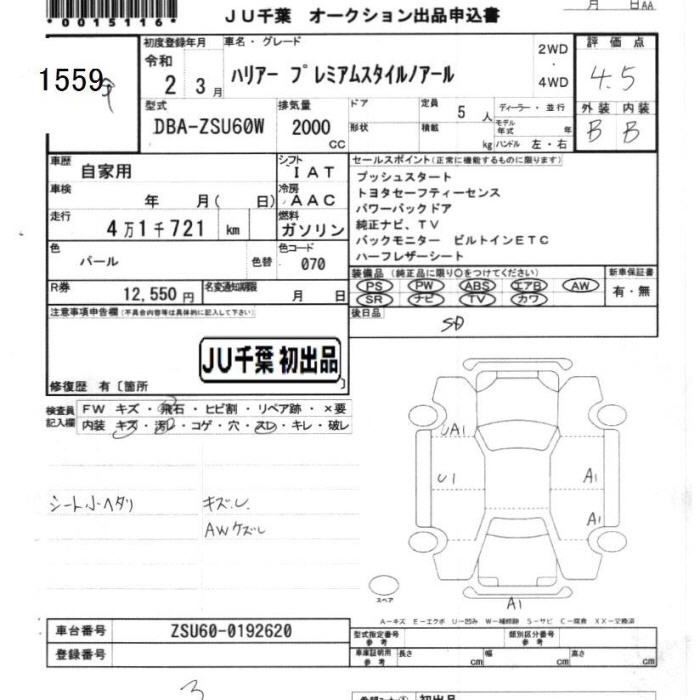 *0015116*
JU千葉 オークション出品申込書
月 日AA
1559
9
初度登録年月
令和
2 3月
車名・グレード
ハリアー プレミアムスタイルノアール
2WD
・
4WD
評価点
4.5
外装 内装
B B
型式
DBA-ZSU60W
排気量
2000
CC
ドア
形状
定員
5人
積載
kg
ディーラー・並行
モデル年式 年
ハンドル 左・右
車歴
自家用
シフト
IAT
車検
年 月( 日)
冷房
AAC
走行
4万1千721 km
燃料
ガソリン
色
パール
色替
色コード
070
R券
12,550円
名変通知期限
月 日
セールスポイント(正常に機能するものに限ります)
プッシュスタート
トヨタセーフティーセンス
パワーバックドア
純正ナビ、TV
バックモニター ビルトインETC
ハーフレザーシート
装備品 (純正品に限り○をつけてください)
PS PW ABS エアB AW
SR ナビ TV カワ
新車保証書
有・無
後日品
SD
注意事項申告欄(不具合内容等は具体的に記入して下さい)
JU千葉 初出品
修復歴 有〔箇所 〕
検査員
記入欄
FW キズ・飛石・ヒビ割・リペア跡・×要
内装 キズ・汚レ・コゲ・穴・スレ・キレ・破レ
シート小ヘタリ
キズ.し.
AWケズレ
UA1
U1
A1
A1
A1
スペア
A-キズ E-エクボ U-凹み W-補修跡 S-サビ C-腐食 XX-交換済
車台番号
ZSU60-0192620
登録番号
型式指定番号
参考
類別区分番号
参考
車庫証明用
参考
長さ
cm
幅
cm
高さ
cm
3
初出品